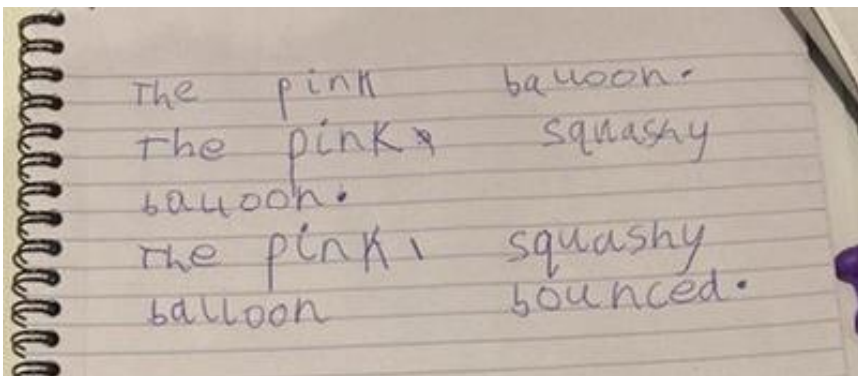 The pink balloon.
The pink, squashy
balloon.
The pink, squashy
balloon bounced.